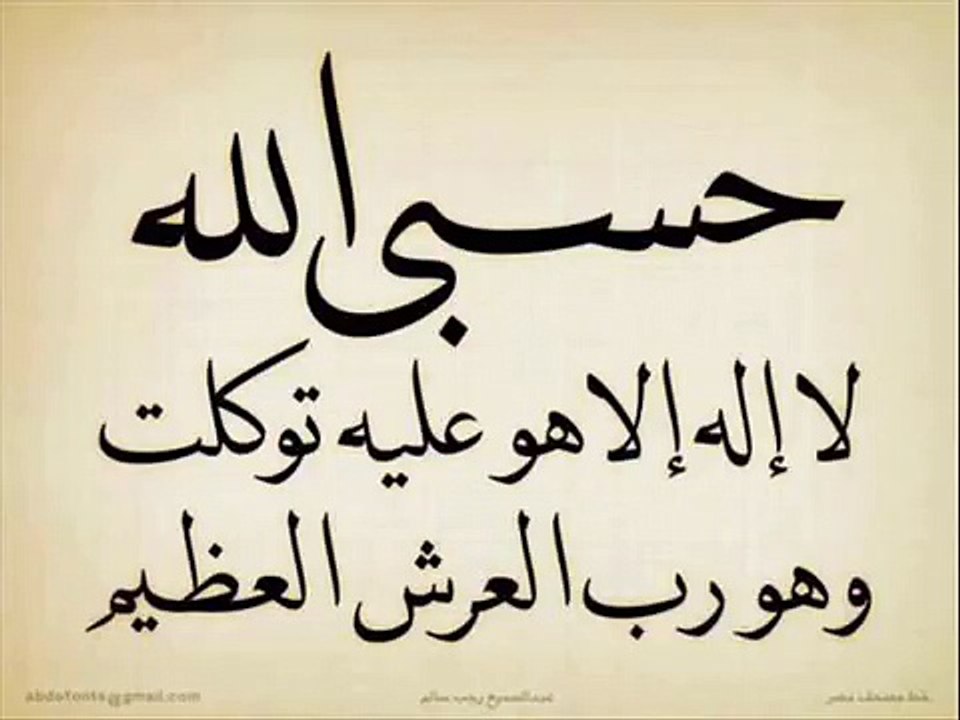 حسبى الله
لا إله إلا هو عليه توكلت
وهو رب العرش العظيم
خط مصحف مصر عبدالسميع رجب سالم abdofonts@gmail.com